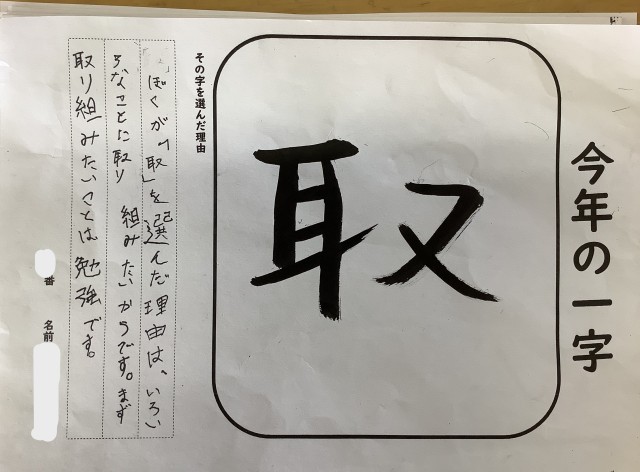 今年の一字
取
その字を選んだ理由
ぼくが「取」を選んだ理由は、いろい
ろなことに取り組みたいからです。まず
取り組みたいことは勉強です。
番 名前